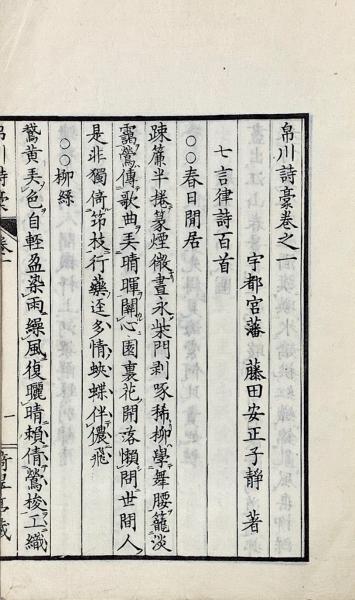 帛川詩稾卷之一
宇都宮藩 藤田安正子靜 著
七言律詩百首
○○春日閒居
疎簾半捲篆煙微晝永柴門剥啄稀柳學舞腰籠淡
靄鶯傳歌曲弄晴暉闌心園裏花開落懶問世間人
是非獨倚筇枝行藥逕多情蛺蝶伴儂飛
○○柳絲
鵞黃弄色自輕盈染雨繰風復曬晴賴倩鶯梭工織
帛川詩稾 卷一 一